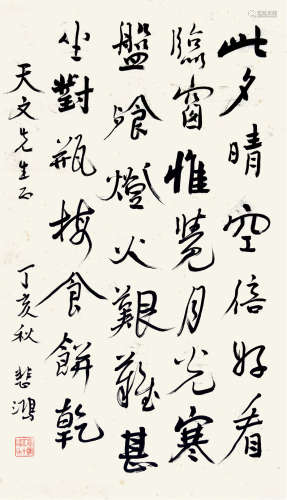 此夕晴空倍好看
臨窗惟覺月光寒
盤飧燈火艱難甚
坐對瓶梅食餅乾
天文先生正
丁亥秋 悲鴻